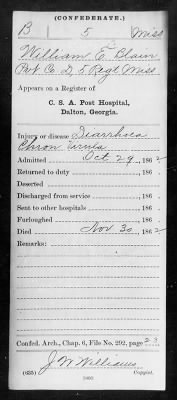 (CONFEDERATE.)
B 5 Miss
William E Blain
Pvt Co D, 5 Regt Miss.
Appears on a Register of
C. S. A. Post Hospital,
Dalton, Georgia.
Injury or disease Diarrhoea
Chron
Admitted Oct 29, 1862
Returned to duty , 186
Deserted , 186
Discharged from service , 186
Sent to other hospitals , 186
Furloughed , 186
Died Nov 30, 1862
Remarks:
Confed. Arch., Chap. 6, File No. 292, page 23
J W Williams
(635) Copyist.